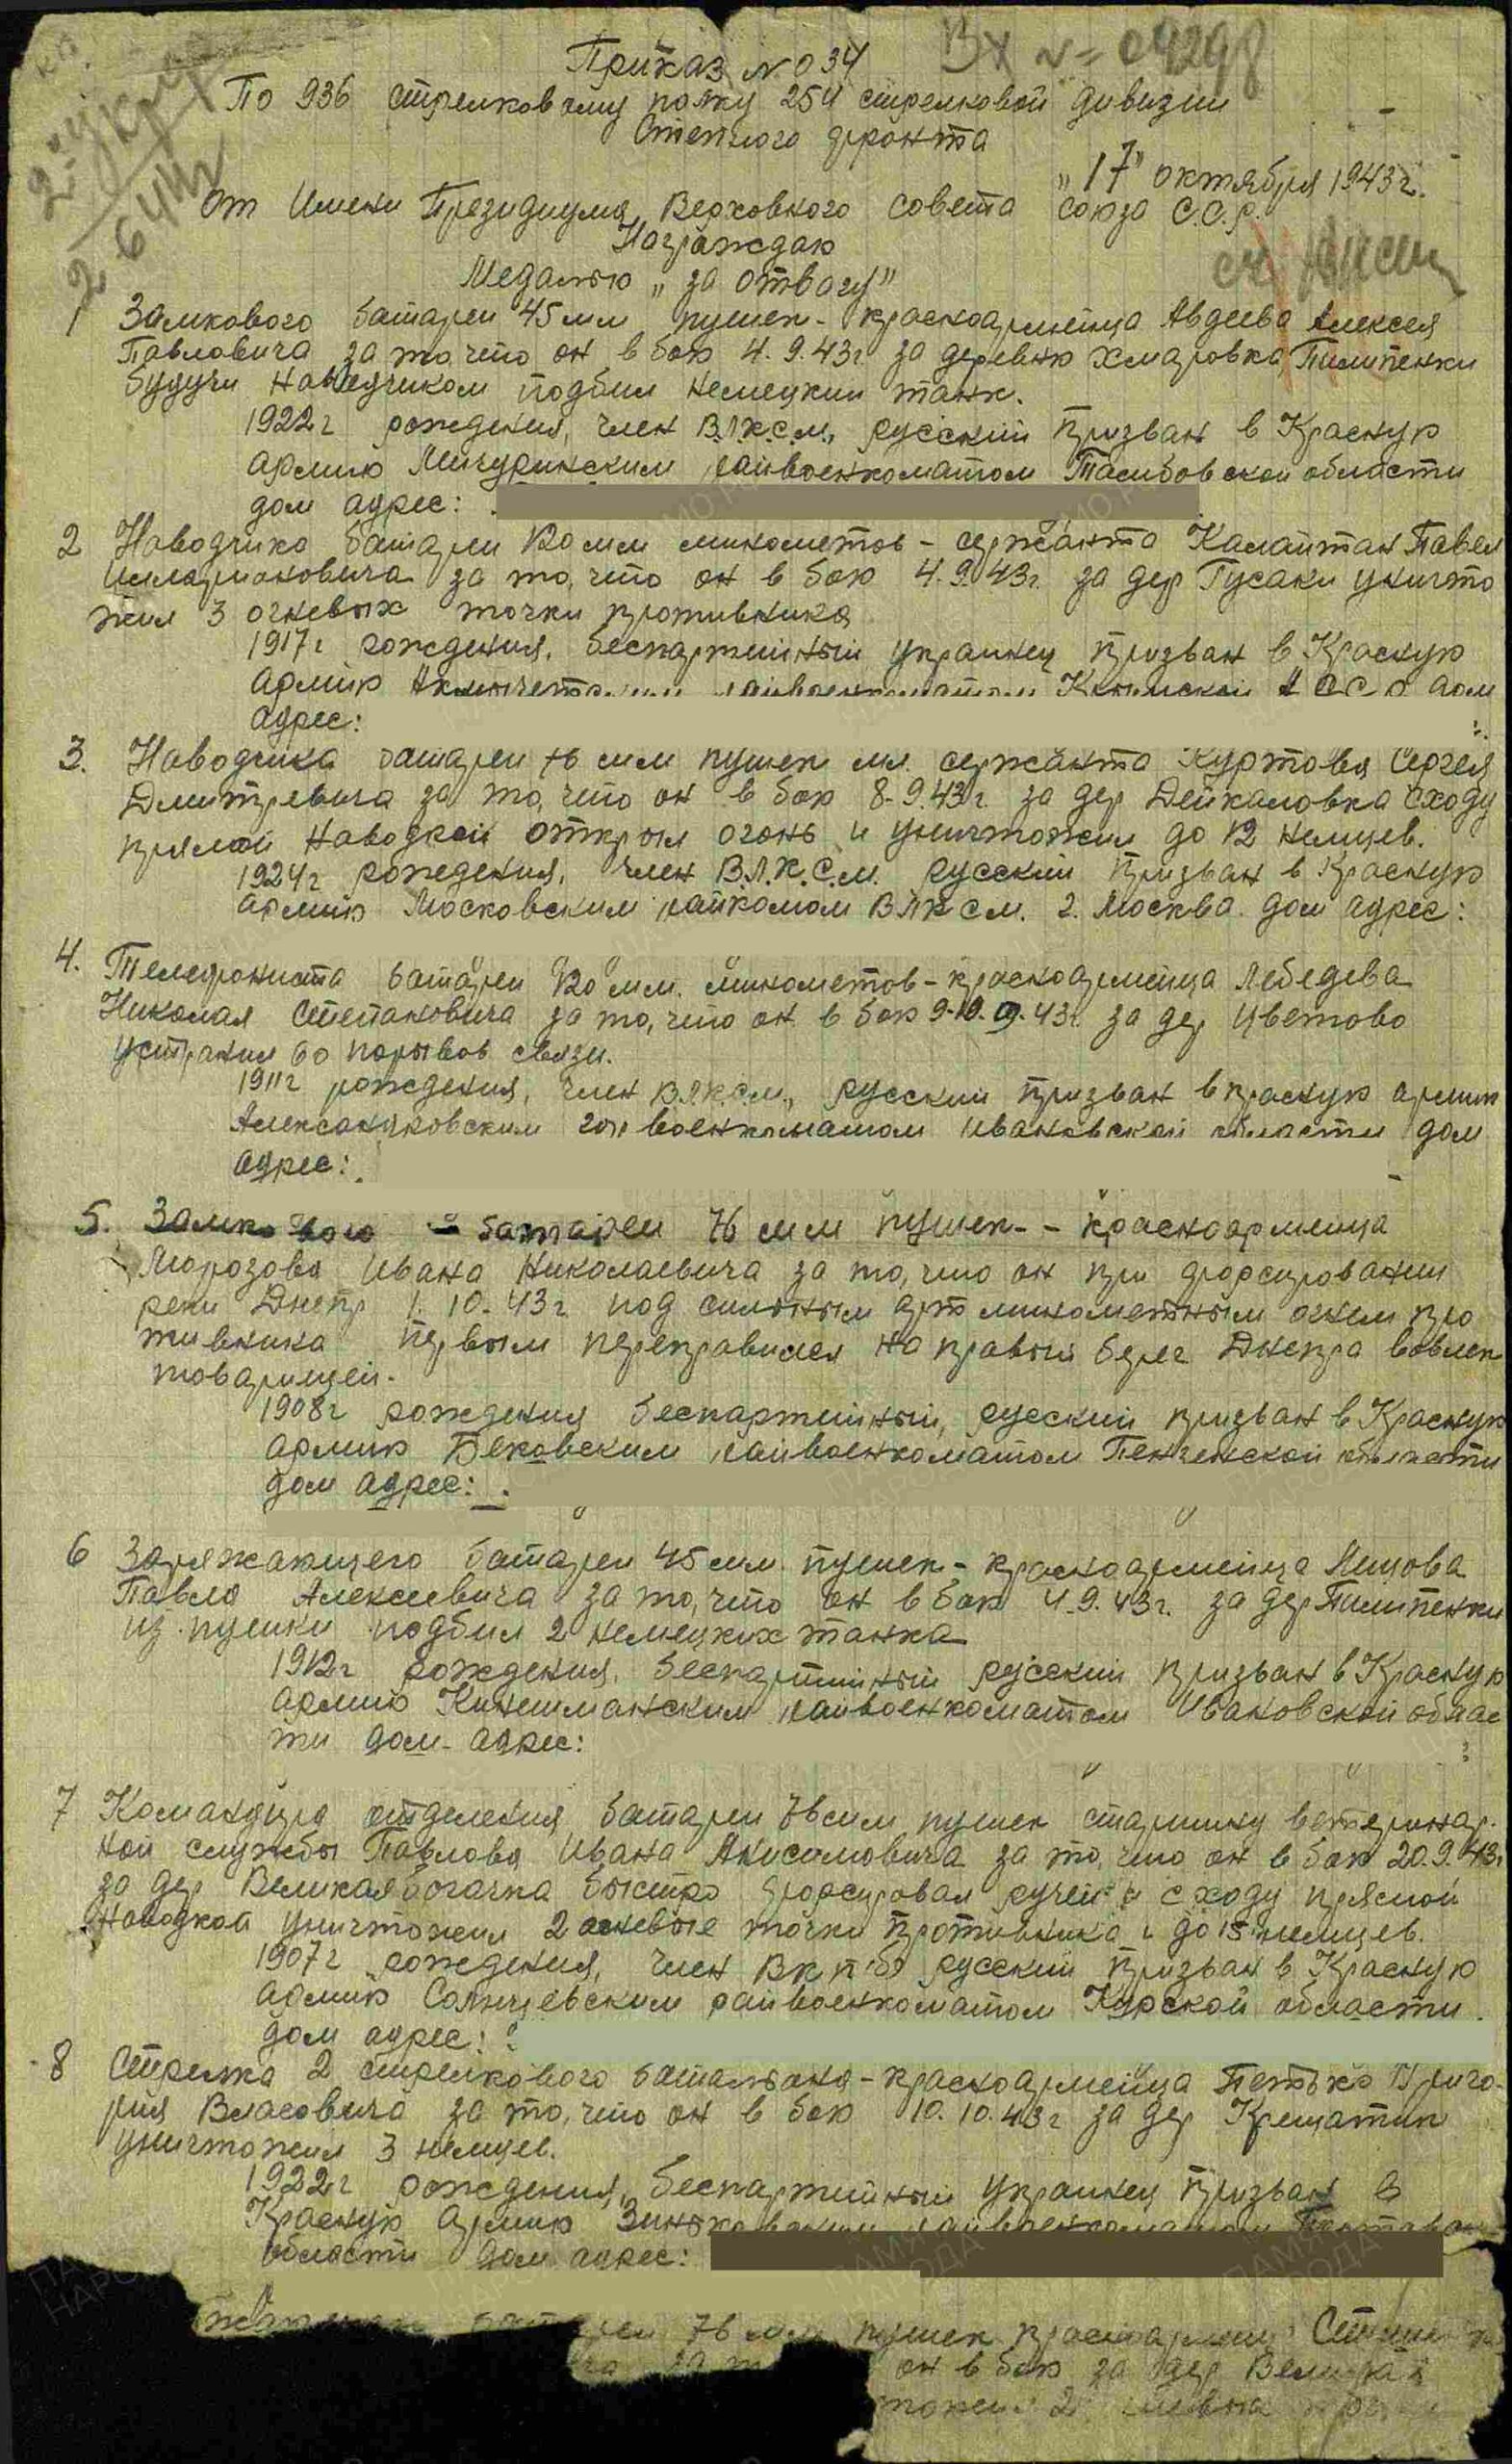 Вх № 04298
2й Укр.
Приказ № 034
По 936 стрелковому полку 254 стрелковой дивизии
Степного фронта
„17” октября 1943г.
От Имени Президиума Верховного совета союза С.С.Р.
Награждаю
Медалью „за отвагу”
1 Замкового батареи 45мм пушек - красноармейца Авдеева Алексея
Павловича за то, что он в бою 4.9.43г за деревню Хмаровка Пилипенки
будучи наводчиком подбил немецкий танк.
1922г рождения, член В.Л.К.С.М., русский призван в Красную
армию Мичуринским райвоенкоматом Тамбовской области
дом адрес:
2 Наводчика батареи 120 мм минометов - сержанта Калайтан Павел
Иллармоновича за то, что он в бою 4.9.43г. за дер Гусаки уничто
жил 3 огневых точки противника
1917г рождения, беспартийный украинец призван в Красную
армию райвоенкоматом Крымской АССР дом
адрес:
3. Наводчика батареи 76 мм пушек мл. сержанта Куртова Сергея
Дмитревича за то, что он в бою 8.9.43г. за дер Дейкаловка сходу
прямой наводкой открыл огонь и уничтожил до 12 немцев.
1924г рождения, член В.Л.К.С.М. русский призван в Красную
армию Московским райкомом ВЛКСМ. г. Москва. дом адрес:
4. Телефониста батареи 120 мм. минометов - красноармейца Лебедева
Николая Степановича за то, что он в бою 9-10.9.43г за дер Цветово
устранил 60 порывов связи.
1911г рождения, член ВЛКСМ., русский призван в красную армию
Александровским горвоенкоматом Ивановской области дом
адрес:
5. Замкового - батареи 76 мм пушек - - красноармейца
Морозова Ивана Николаевича за то, что он при форсировании
реки Днепр 1.10.43г под сильным арт минометным огнем про
тивника первым переправился на правый берег Днепра вовлек
товарищей.
1908г рождения беспартийный, русский призван в Красную
армию Бековским райвоенкоматом Пензенской области
дом адрес:
6 Заряжающего батареи 45 мм. пушек - красноармейца
Павла Алексеевича за то, что он в бою 4.9.43г. за дер Пилипенки
из пушки подбил 2 немецких танка
1912г рождения, беспартийный русский призван в Красную
армию Кинешманским райвоенкоматом Ивановской облас
ти дом. адрес:
7 Командира отделения батареи 76мм пушек старшину ветеринар.
ной службы Павлова Ивана Анисимовича за то, что он в бою 20.9.43г
за дер Великая богачка быстро форсировал ручей и сходу прямой
наводкой уничтожил 2 огневые точки противника и до 15 немцев.
1907г рождения, член ВКП(б) русский призван в Красную
армию Солнцевским райвоенкоматом Курской области.
дом адрес:
8 Стрелка 2 стрелкового батальона - красноармейца Петько Григо-
рия Власовича за то, что он в бою 10.10.43г за дер Крещатик
уничтожил 3 немцев.
1922г рождения, беспартийный украинец призван в
Красную армию Зиньковским райвоенкоматом
области дом. адрес:
76 мм пушек
он в бою за дер
2